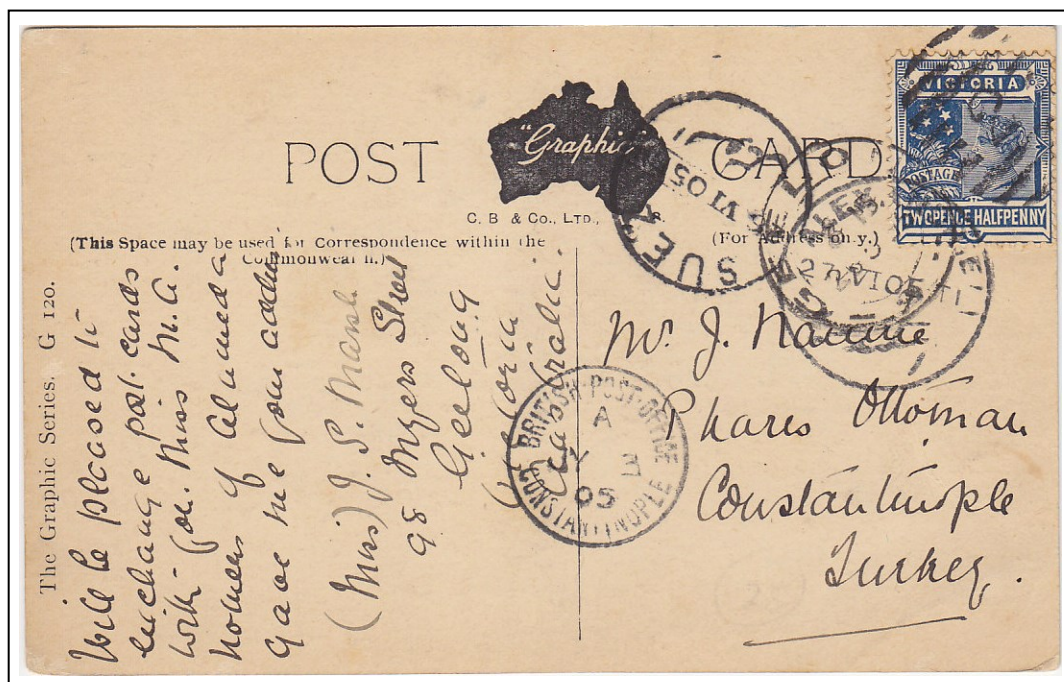 POST CARD
"Graphic"
C. B & Co., LTD.,
(This Space may be used for Correspondence within the
Commonwealth.)
(For Address only.)
The Graphic Series. G 120.
VICTORIA
POSTAGE
TWOPENCE HALFPENNY
SUEZ
VI 05
27 VI 05
BRITISH POST OFFICE
A
JY 3
05
CONSTANTINOPLE
Will be pleased to
exchange post cards
with you. Miss M. A.
of Alameda
gave me your address
(Miss) J. S. Marsh
98 Myers Street
Geelong
Victoria
Australia.
Mr. J.
Phares Ottoman
Constantinople
Turkey.